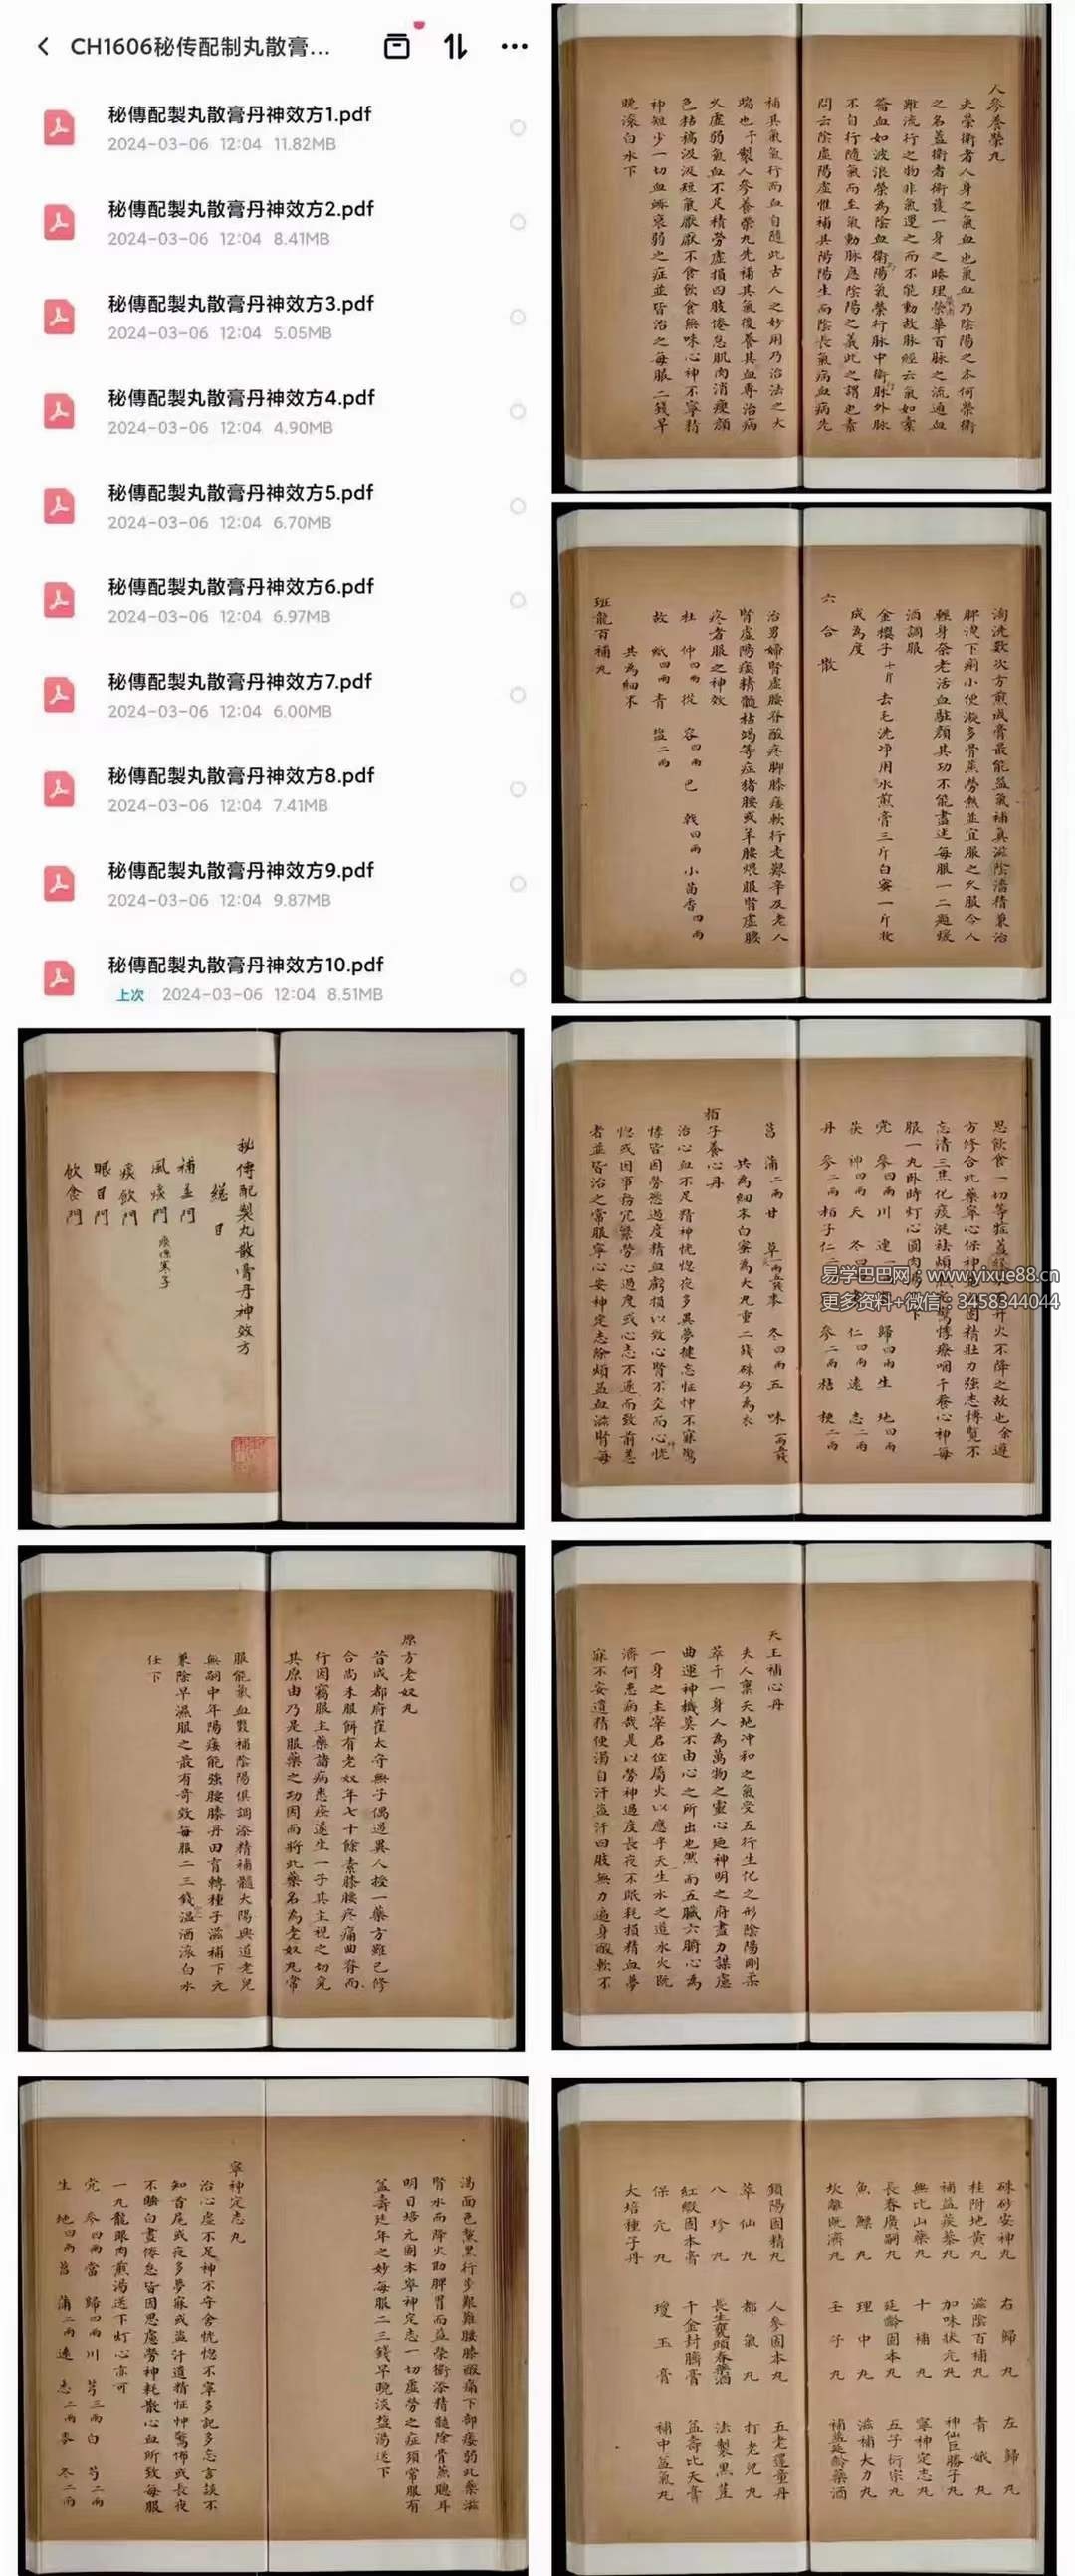 CH1606秘传配制丸散膏...
秘傳配製丸散膏丹神效方1.pdf
2024-03-06 12:04 11.82MB
秘傳配製丸散膏丹神效方2.pdf
2024-03-06 12:04 8.41MB
秘傳配製丸散膏丹神效方3.pdf
2024-03-06 12:04 5.05MB
秘傳配製丸散膏丹神效方4.pdf
2024-03-06 12:04 4.90MB
秘傳配製丸散膏丹神效方5.pdf
2024-03-06 12:04 6.70MB
秘傳配製丸散膏丹神效方6.pdf
2024-03-06 12:04 6.97MB
秘傳配製丸散膏丹神效方7.pdf
2024-03-06 12:04 6.00MB
秘傳配製丸散膏丹神效方8.pdf
2024-03-06 12:04 7.41MB
秘傳配製丸散膏丹神效方9.pdf
2024-03-06 12:04 9.87MB
秘傳配製丸散膏丹神效方10.pdf
上次 2024-03-06 12:04 8.51MB
人參養榮丸
夫榮衛者人身之氣血也氣血乃陰陽之本何榮衛
之名蓋衛者衛護一身之腠理榮華百脉之流通血
雖流行之物非氣運之而不能動故脉經云氣如橐
籥血如波浪榮為陰血衛陽氣榮行脉中衛脉外脉
不自行隨氣而至氣動脉應陰陽之義此之謂也素
問云陰虛陽虛惟補其陽陽生而陰長氣病血病先
補其氣氣行而血自隨此古人之妙用乃治法之大
端也予製人參養榮丸先補其氣後養其血專治病
久虛弱氣血不足積勞虛損四肢倦怠肌肉消瘦顏
色枯槁汲汲短氣厭厭不食飲食無味心神不寧精
神短少一切血衰弱之症並皆治之每服二錢早
晚滾白水下
淘洗數次方煎成膏最能益氣補真滋陰濇精兼治
脾洩下痢小便滾多骨蒸勞熱並宜服之久服令人
輕身奈老活血駐顏其功不能盡述每服一二匙緩
酒調服
金櫻子十斤去毛洗淨用水煎膏三斤白蜜一斤收
成為度
六合散
治男婦腎虛腰脊酸疼腳膝痿軟行老艱辛及老人
腎虛陽痿精髓枯竭等症猪腰或羊腰煨服腎虛腰
疼者服之神效
杜仲四兩 從容四兩 巴戟四兩 小茴香四兩
故紙四兩 青塩二兩
共為細末
班龍百補丸
秘傳配製丸散膏丹神效方
總目
補益門
風痰門
痰飲門
眼目門
飲食門
思飲食一切等症
方修合此藥寧心保神固精壯力強志博覽不
忘清三焦化痰涎祛煩悸療咽干養心神每
服一丸臥時灯心圓肉
党參四兩 川連
歸四兩 生地四兩
茯神四兩 天冬四兩
仁四兩 遠志二兩
丹參二兩 栢子仁二
參二兩 桔梗二兩
菖蒲二兩 甘草 冬四兩 五味
共為細末白蜜為大丸重二錢硃砂為衣
栢子養心丹
治心血不足精神恍惚夜多異夢健忘怔忡不寐驚
悸皆因勞慾過度精血虧損以致心腎不交而心恍
惚或因事務冗繁勞心過度或心志不遂而致前恙
者並皆治之常服寧心安神定志除煩益血滋腎每
易学巴巴网：www.yixue88.cn
更多资料+微信：3458344044
原方老奴丸
昔成都府崔太守無子偶遇異人授一藥方雖已修
合尚未服餌有老奴年七十餘素膝腰疼痛曲脊而
行因竊服主藥諸病悉痊遂生一子其主視之切究
其原由乃是服藥之功因而將此藥名為老奴丸常
服能氣血製補陰陽俱調添精補髓大陽興道老兒
無嗣中年陽痿能強腰膝丹田育轉種子滋補下元
兼除早濕服之最有奇效每服二三錢温酒滚白水
任下
天王補心丹
夫人禀天地冲和之氣受五行生化之形陰陽剛柔
萃于一身人為萬物之靈心廼神明之府盡力謀慮
曲運神機莫不由心之所出也然而五臟六腑心為
一身之主宰君位屬火以應乎天生水之道水火既
濟何患病哉是以勞神過度長夜不眠耗損精血夢
寐不安遺精便濁自汗盗汗四肢無力遍身酸軟不
渴面色黧黑行步艱難腰膝酸痛下部痿弱此藥滋
腎水而降火助脾胃而益榮衛添精髓除骨蒸聰耳
明目培元固本寧神定志一切虛勞之症須常服有
益壽延年之妙每服二三錢早晚淡塩湯送下
寧神定志丸
治心虛不足神不守舍恍惚不寧多記多忘言談不
知首尾或夜多夢寐或盗汗遺精怔忡驚悸或長夜
不睡白晝倦怠皆因思慮勞神耗散心血所致每服
一丸龍眼肉煎湯送下灯心亦可
党參四兩 當歸四兩 川芎三兩 白芍二兩
生地四兩 菖蒲二兩 遠志二兩 麥冬二兩
硃砂安神丸 右歸丸 左歸丸
桂附地黃丸 滋陰百補丸 青娥丸
補益蒺藜丸 加味狀元丸 神仙巨勝子丸
無比山藥丸 十補丸 寧神定志丸
長春廣嗣丸 延齡固本丸 五子衍宗丸
魚鰾丸 理中丸 滋補大力丸
坎離既濟丸 壬子丸 補益延齡藥酒
鎖陽固精丸 人參固本丸 五老還童丹
萃仙丸 都氣丸 打老兒丸
八珍丸 長生甕頭春藥酒 法製黑荳
紅緞固本膏 千金封臍膏 益壽比天膏
保元丸 瓊玉膏 補中益氣丸
大培種子丹